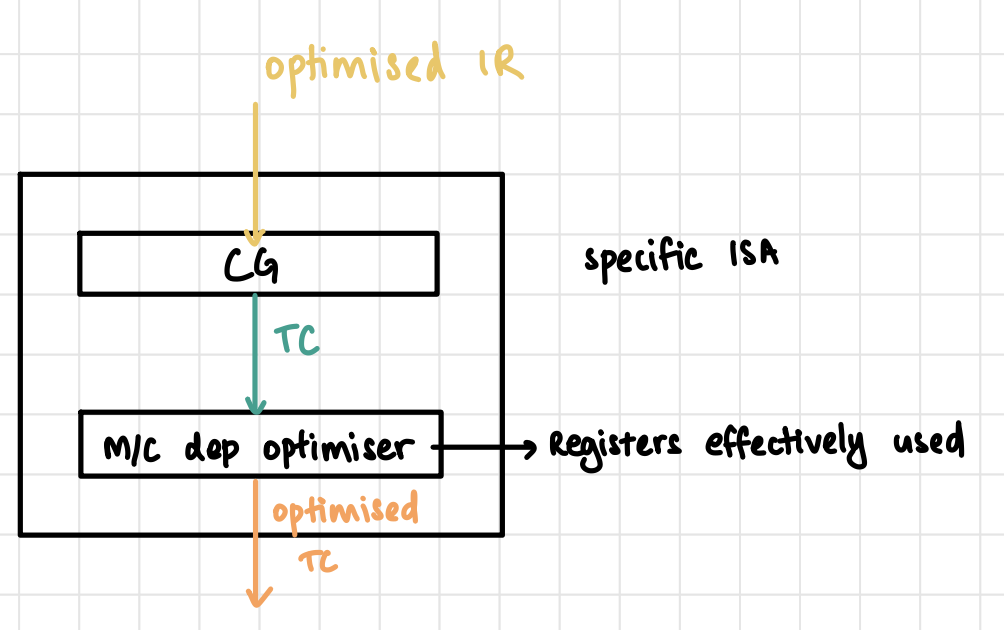 optimised IR
CG
specific ISA
TC
M/C dep optimiser
Registers effectively used
optimised
TC